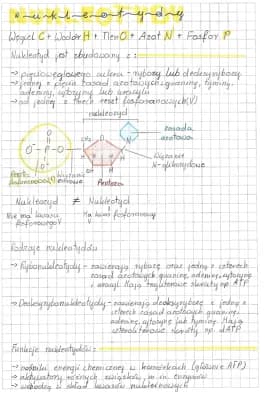 nukleotydy
Węgiel C + Wodór H + Tlen O + Azot N + Fosfor P
Nukleotyd jest zbudowany z:
→ pięciowęglowego cukru - rybozy lub deoksyrybozy
→ jednej z pięciu zasad azotowych: guaniny, tyminy,
adeniny, cytozyny lub uracylu
→ od jednej do trzech reszt fosforanowych (V)
zasada
azotowa
O⁻ P O CH₂ O
O⁻
H H
Wiązanie
N-glikozydowe
Reszta
fosforanowa (V)
Wiązanie
estrowe
Pentoza
Nukleozyd ≠ Nukleotyd
Nie ma kwasu
fosforowego V
Ma kwas fosforowy
Rodzaje nukleotydów
→ Rybonukleotydy - zawierają rybozę oraz jedną z czterech
zasad azotowych guaninę, adeninę, cytozynę
i uracyl. Mają trzyliterowe skróty np. ATP
→ Deoksyrybonukleotydy - zawierają deoksyrybozę i jedną z
czterech zasad azotowych guaninę,
adeninę, cytozynę lub tyminę. Mają
czteroliterowe skróty np. dATP
Funkcje nukleotydów:
→ nośniki energii chemicznej w komórkach (głównie ATP)
→ aktywatory różnych związków m.in. cukrów
→ wchodzą w skład kwasów nukleinowych